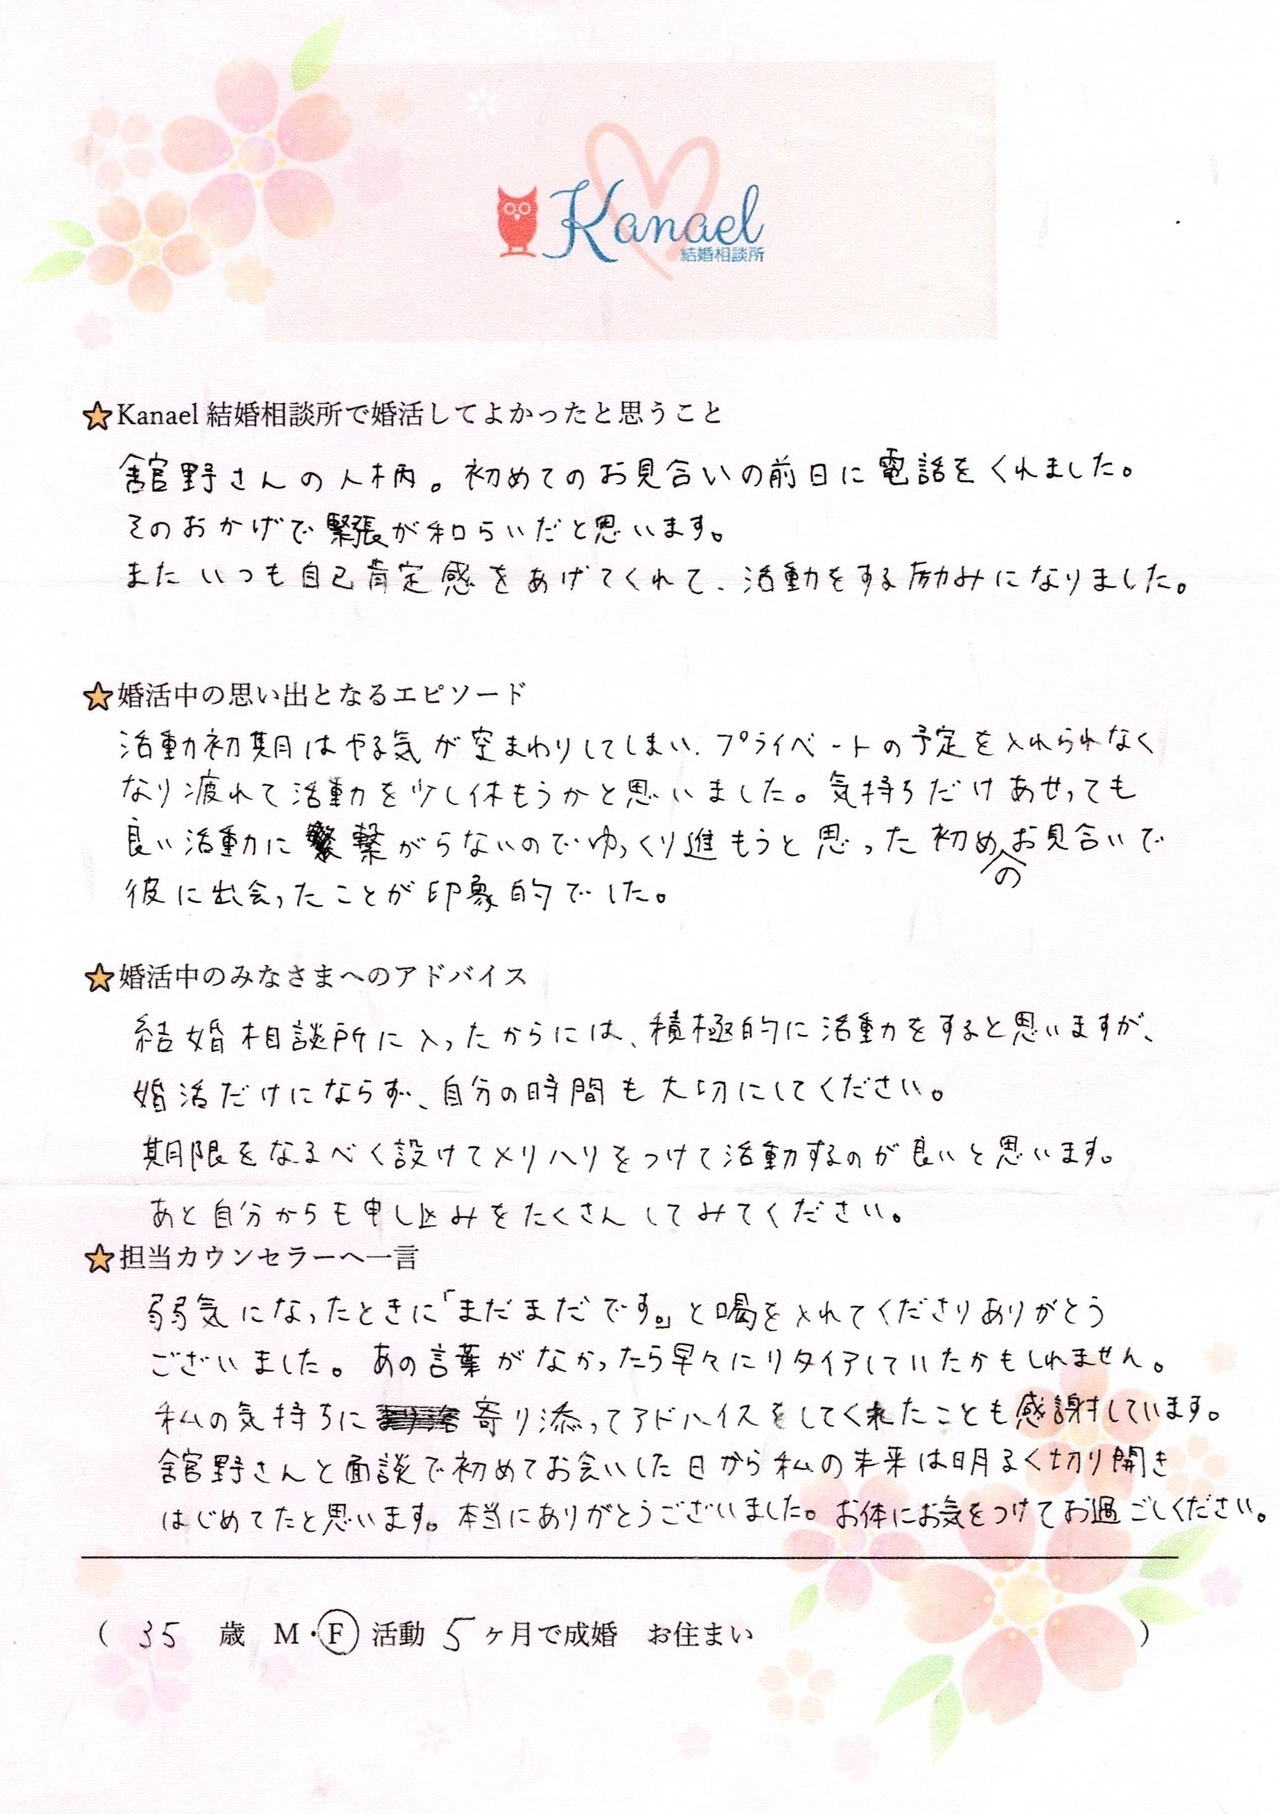 Kanael
結婚相談所
Kanael 結婚相談所で婚活してよかったと思うこと
舘野さんの人柄。初めてのお見合いの前日に電話をくれました。
そのおかげで緊張が和らいだと思います。
またいつも自己肯定感をあげてくれて、活動をする励みになりました。
婚活中の思い出となるエピソード
活動初期はやる気が空まわりしてしまい、プライベートの予定を入れられなく
なり疲れて活動を少し休もうかと思いました。気持ちだけあせっても
良い活動に繋がらないのでゆっくり進もうと思った初めのお見合いで
彼に出会ったことが印象的でした。
婚活中のみなさまへのアドバイス
結婚相談所に入ったからには、積極的に活動をすると思いますが、
婚活だけにならず、自分の時間も大切にしてください。
期限をなるべく設けてメリハリをつけて活動するのが良いと思います。
あと自分からも申し込みをたくさんしてみてください。
担当カウンセラーへ一言
弱気になったときに「まだまだです。」と喝を入れてくださりありがとう
ございました。あの言葉がなかったら早々にリタイアしていたかもしれません。
私の気持ちに寄り添ってアドバイスをしてくれたことも感謝しています。
舘野さんと面談で初めてお会いした日から私の未来は明るく切り開き
はじめてたと思います。本当にありがとうございました。お体にお気をつけてお過ごしください。
( 35 歳 M・F 活動 5 ヶ月で成婚 お住まい )